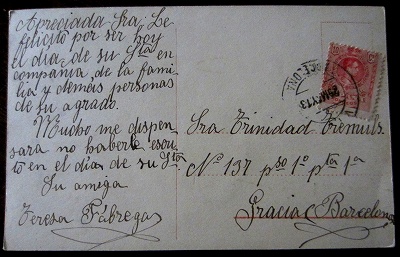 Apreciada Sra: Le
felicito por ser hoy
el dia de su Sta en
compañia de la fami-
lia y demás personas
de su agrado.
Mucho me dispen-
sara no haberle escri-
to en el dia de su Sto
Su amiga
Teresa Fábregas
Sra Trinidad Tremuls
No 137 pso 1º pta 1ª
Gracia (Barcelona